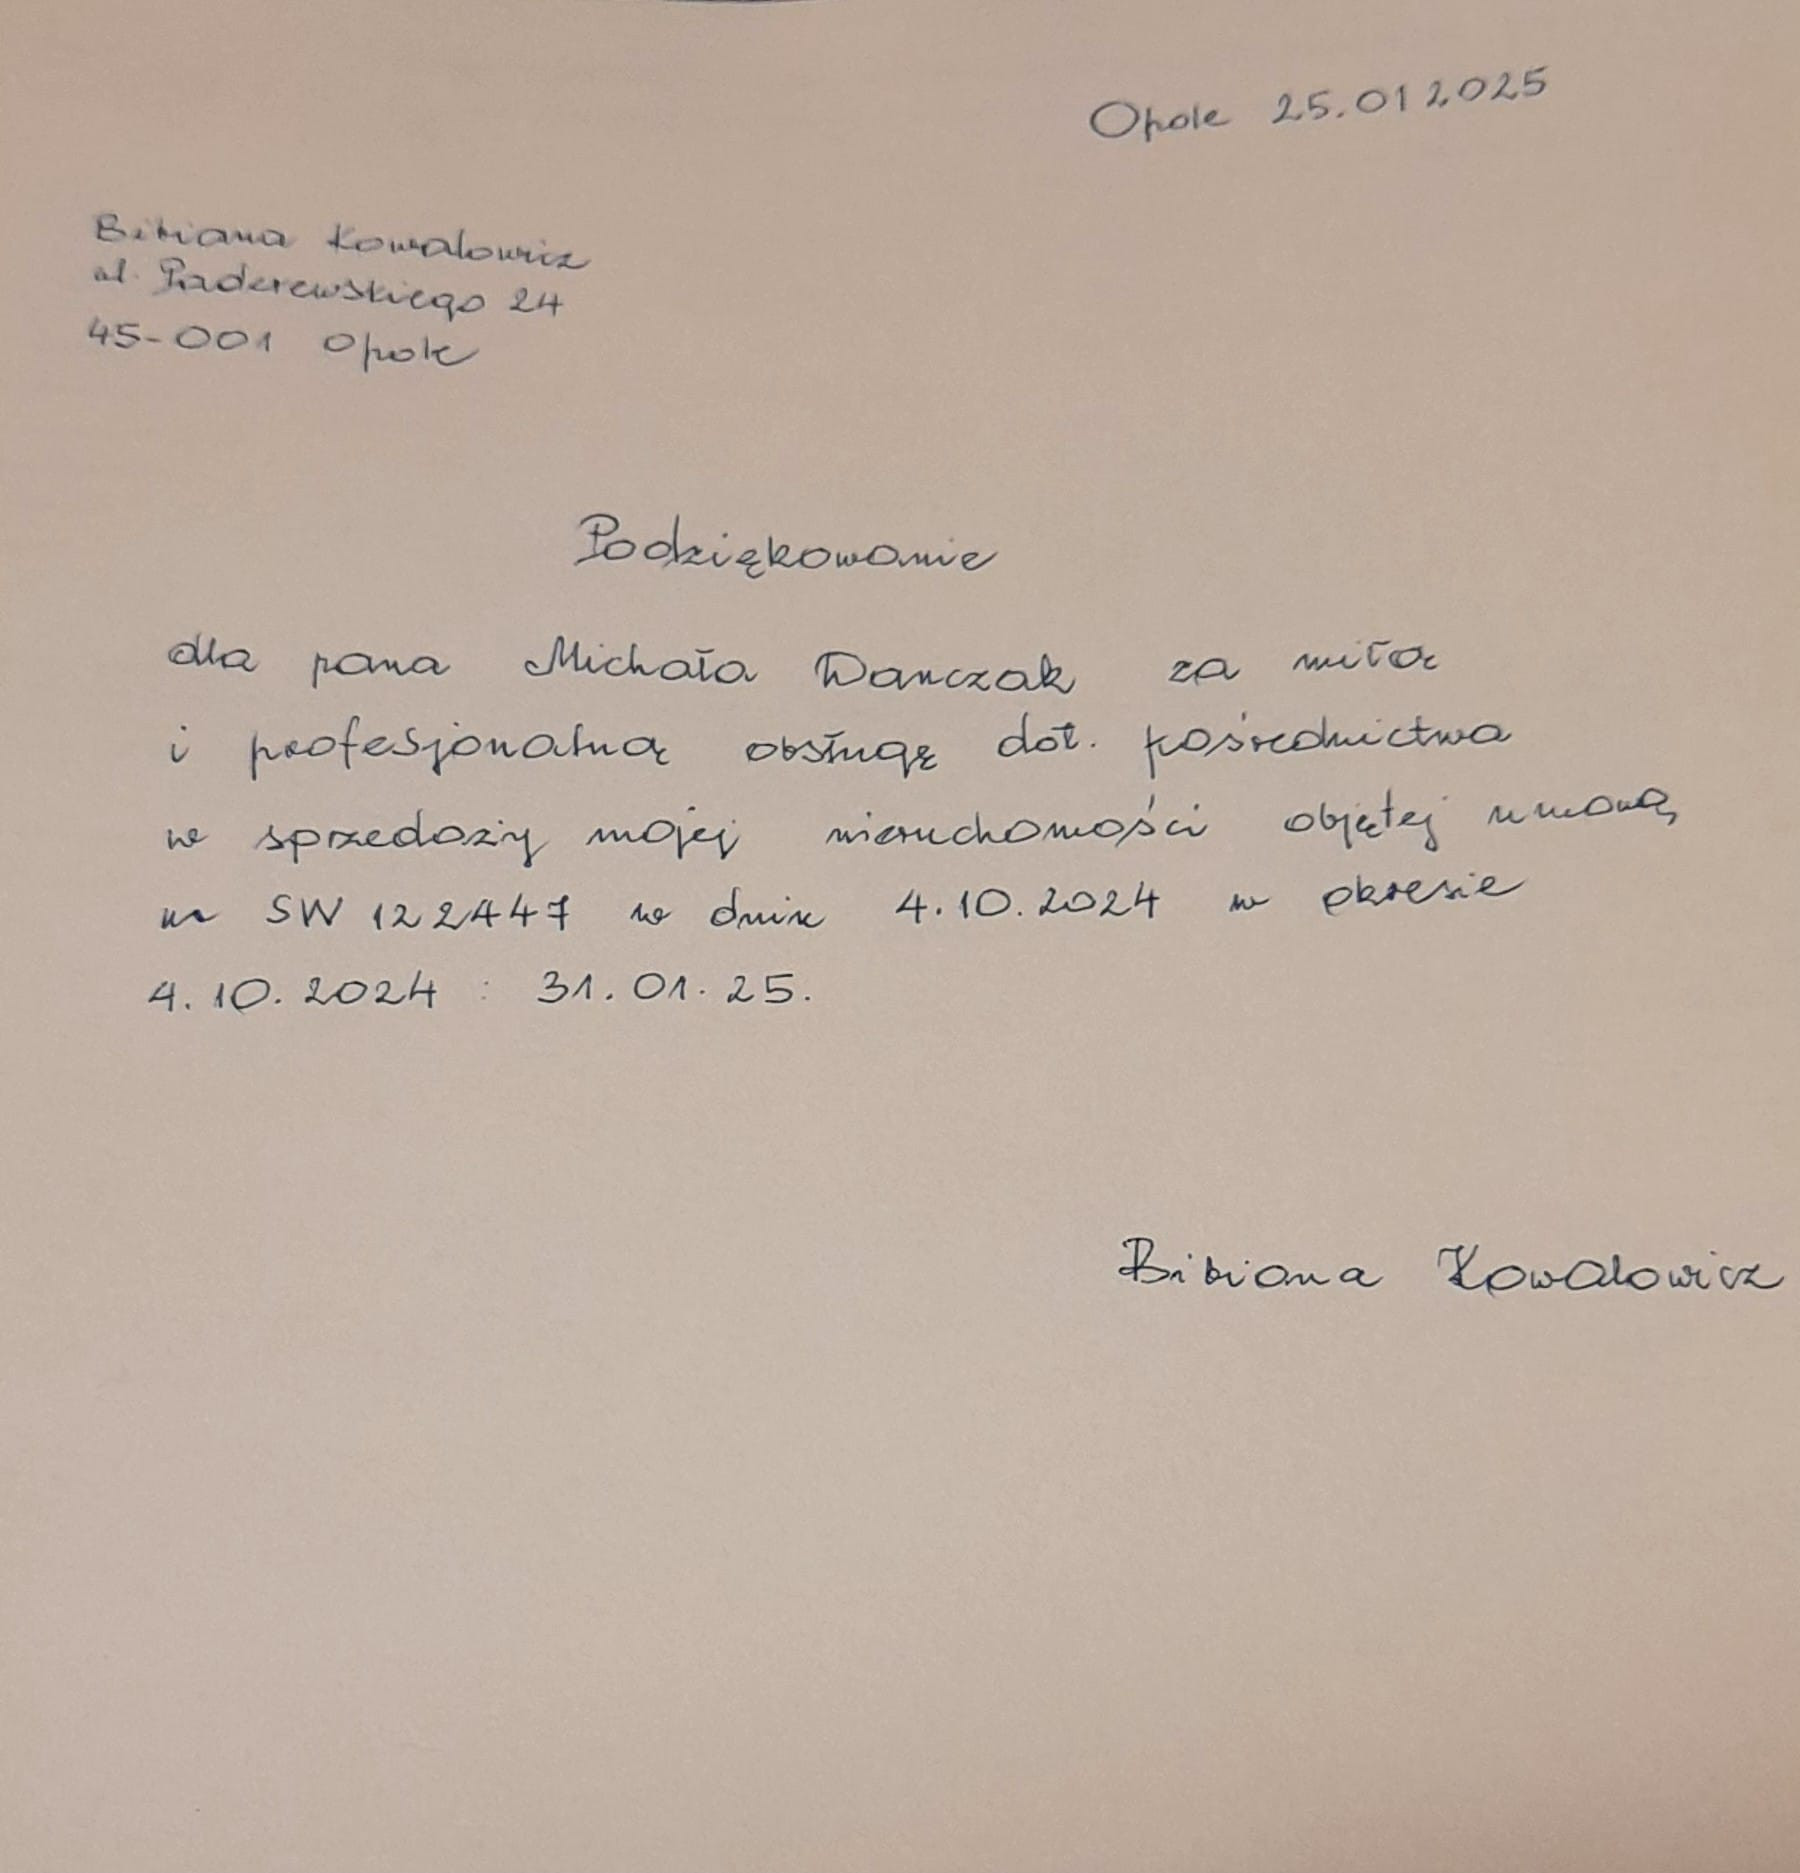 Opole 25.01 2025
Bibiana Kowalowicz
ul. Paderewskiego 24
45-001 Opole
Podziękowanie
dla pana Michała Danczak za miłą
i profesjonalną obsługę dot. pośrednictwa
w sprzedaży mojej nieruchomości objętej umową
nr SW 122447 w dniu 4.10.2024 w okresie
4.10.2024 : 31.01.25.
Bibiana Kowalowicz